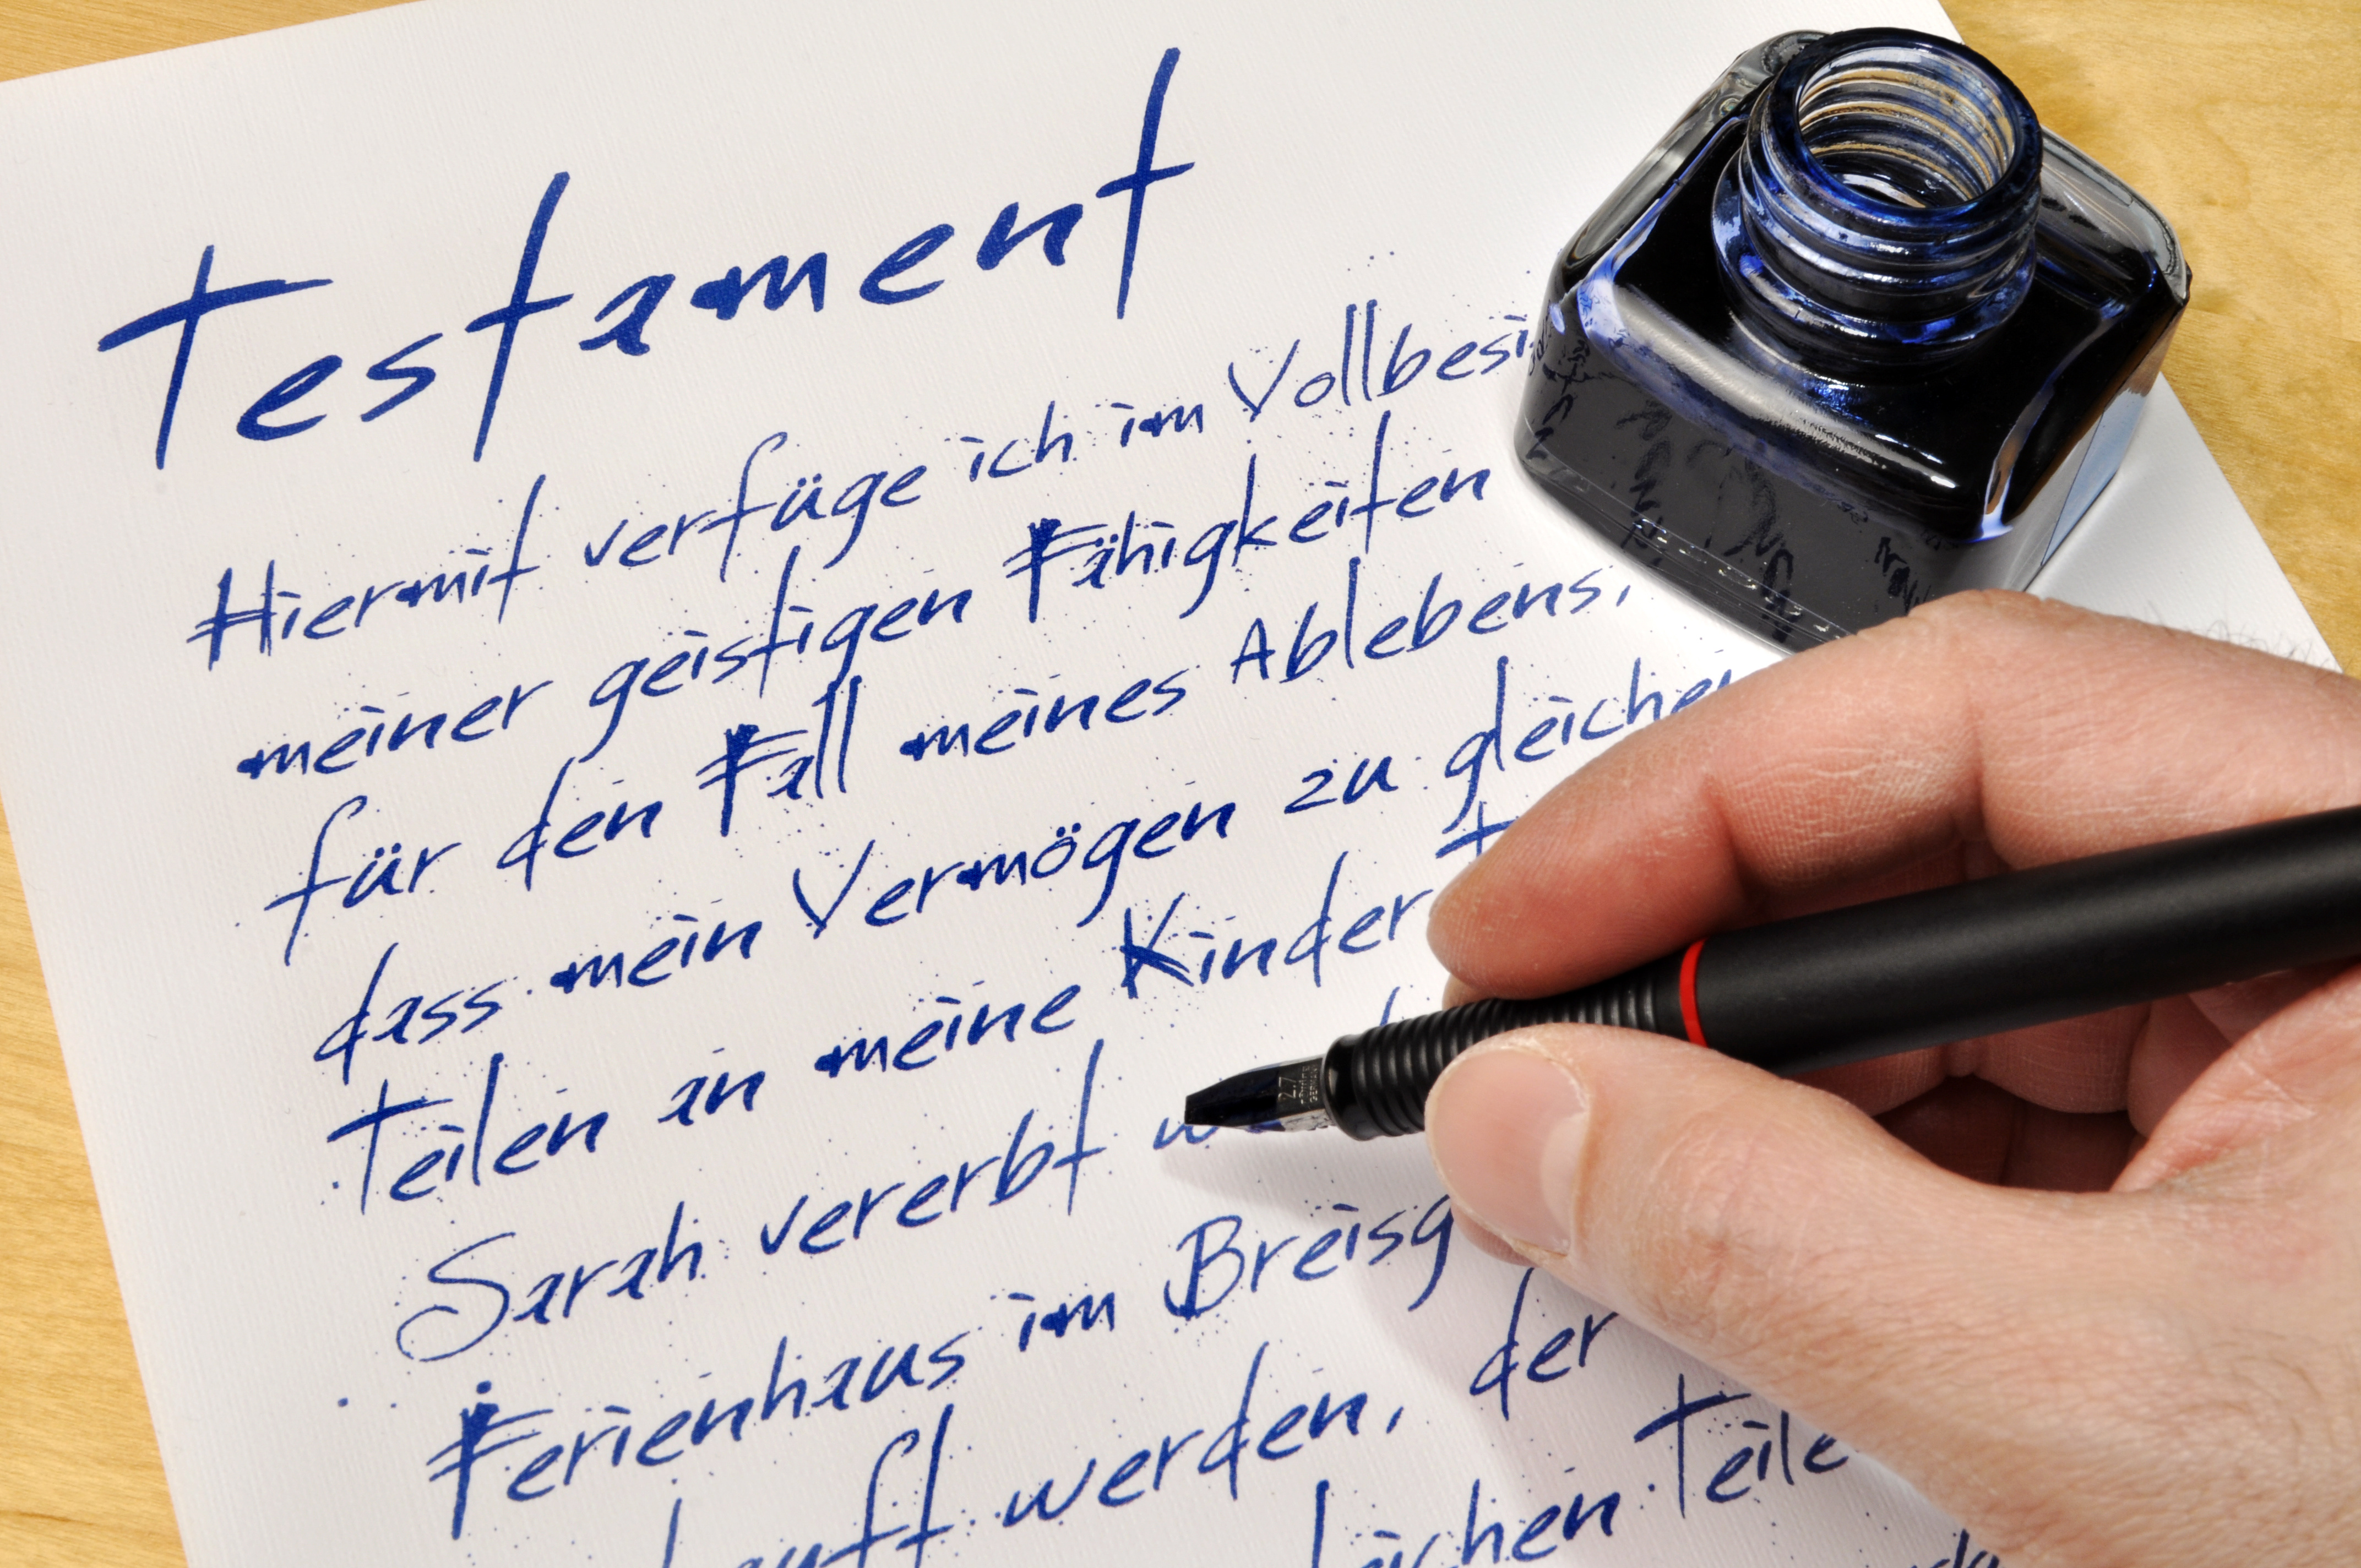 Testament
Hiermit verfüge ich im Vollbesi
meiner geistigen Fähigkeiten
für den Fall meines Ablebens,
dass mein Vermögen zu gleichen
Teilen an meine Kinder T
Sarah vererbt
Ferienhaus im Breisg
kauft werden, der
eichen Teile